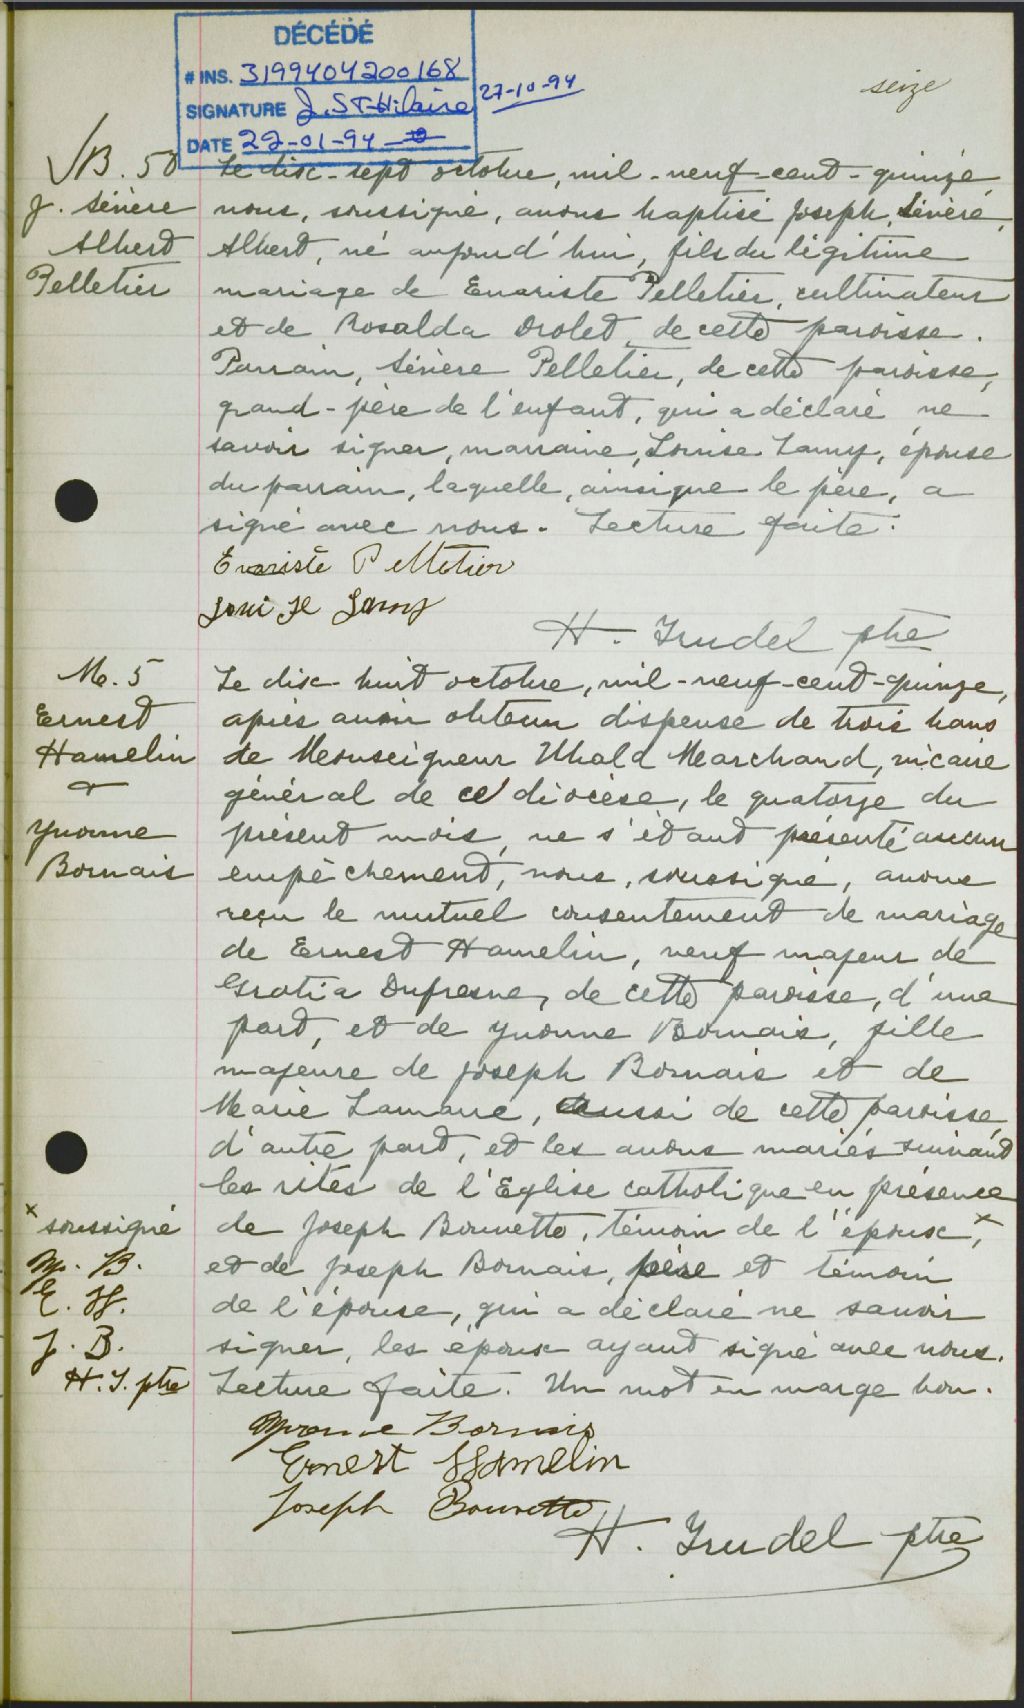 DÉCÉDÉ
# INS. 3199404200168
SIGNATURE J. St-Hilaire
DATE 22-01-94
27-10-94
seize
B. 50
J. Sévère
Albert
Pelletier
Le dix-sept octobre, mil-neuf-cent-quinze,
nous, soussigné, avons baptisé Joseph, Sévère,
Albert, né aujourd'hui, fils du légitime
mariage de Evariste Pelletier, cultivateur
et de Rosalda Drolet, de cette paroisse.
Parrain, Sévère Pelletier, de cette paroisse,
grand-père de l'enfant, qui a déclaré ne
savoir signer, marraine, Louise Lamy, épouse
du parrain, laquelle, ainsi que le père, a
signé avec nous. Lecture faite.
Evariste Pelletier
Loui se Lamy
H. Trudel ptre
M. 5
Ernest
Hamelin
&
Yvonne
Bornais
Le dix-huit octobre, mil-neuf-cent-quinze,
après avoir obtenu dispense de trois bans
de Monseigneur Ubald Marchand, vicaire
général de ce diocèse, le quatorze du
présent mois, ne s'étant présenté aucun
empêchement, nous, soussigné, avons
reçu le mutuel consentement de mariage
de Ernest Hamelin, veuf majeur de
Gratia Dufresne, de cette paroisse, d'une
part, et de Yvonne Bornais, fille
majeure de Joseph Bornais et de
Marie Lamarre, aussi de cette paroisse,
d'autre part, et les avons mariés suivant
les rites de l'Eglise catholique en présence
de Joseph Bounette, témoin de l'époux, x
et de Joseph Bornais, père et témoin
de l'épouse, qui a déclaré ne savoir
signer, les époux ayant signé avec nous.
Lecture faite. Un mot en marge bon.
x soussigné
Y. B.
E. H.
J. B.
H. T. ptre
Yvonne Bornais
Ernest Hamelin
Joseph Bounette
H. Trudel ptre